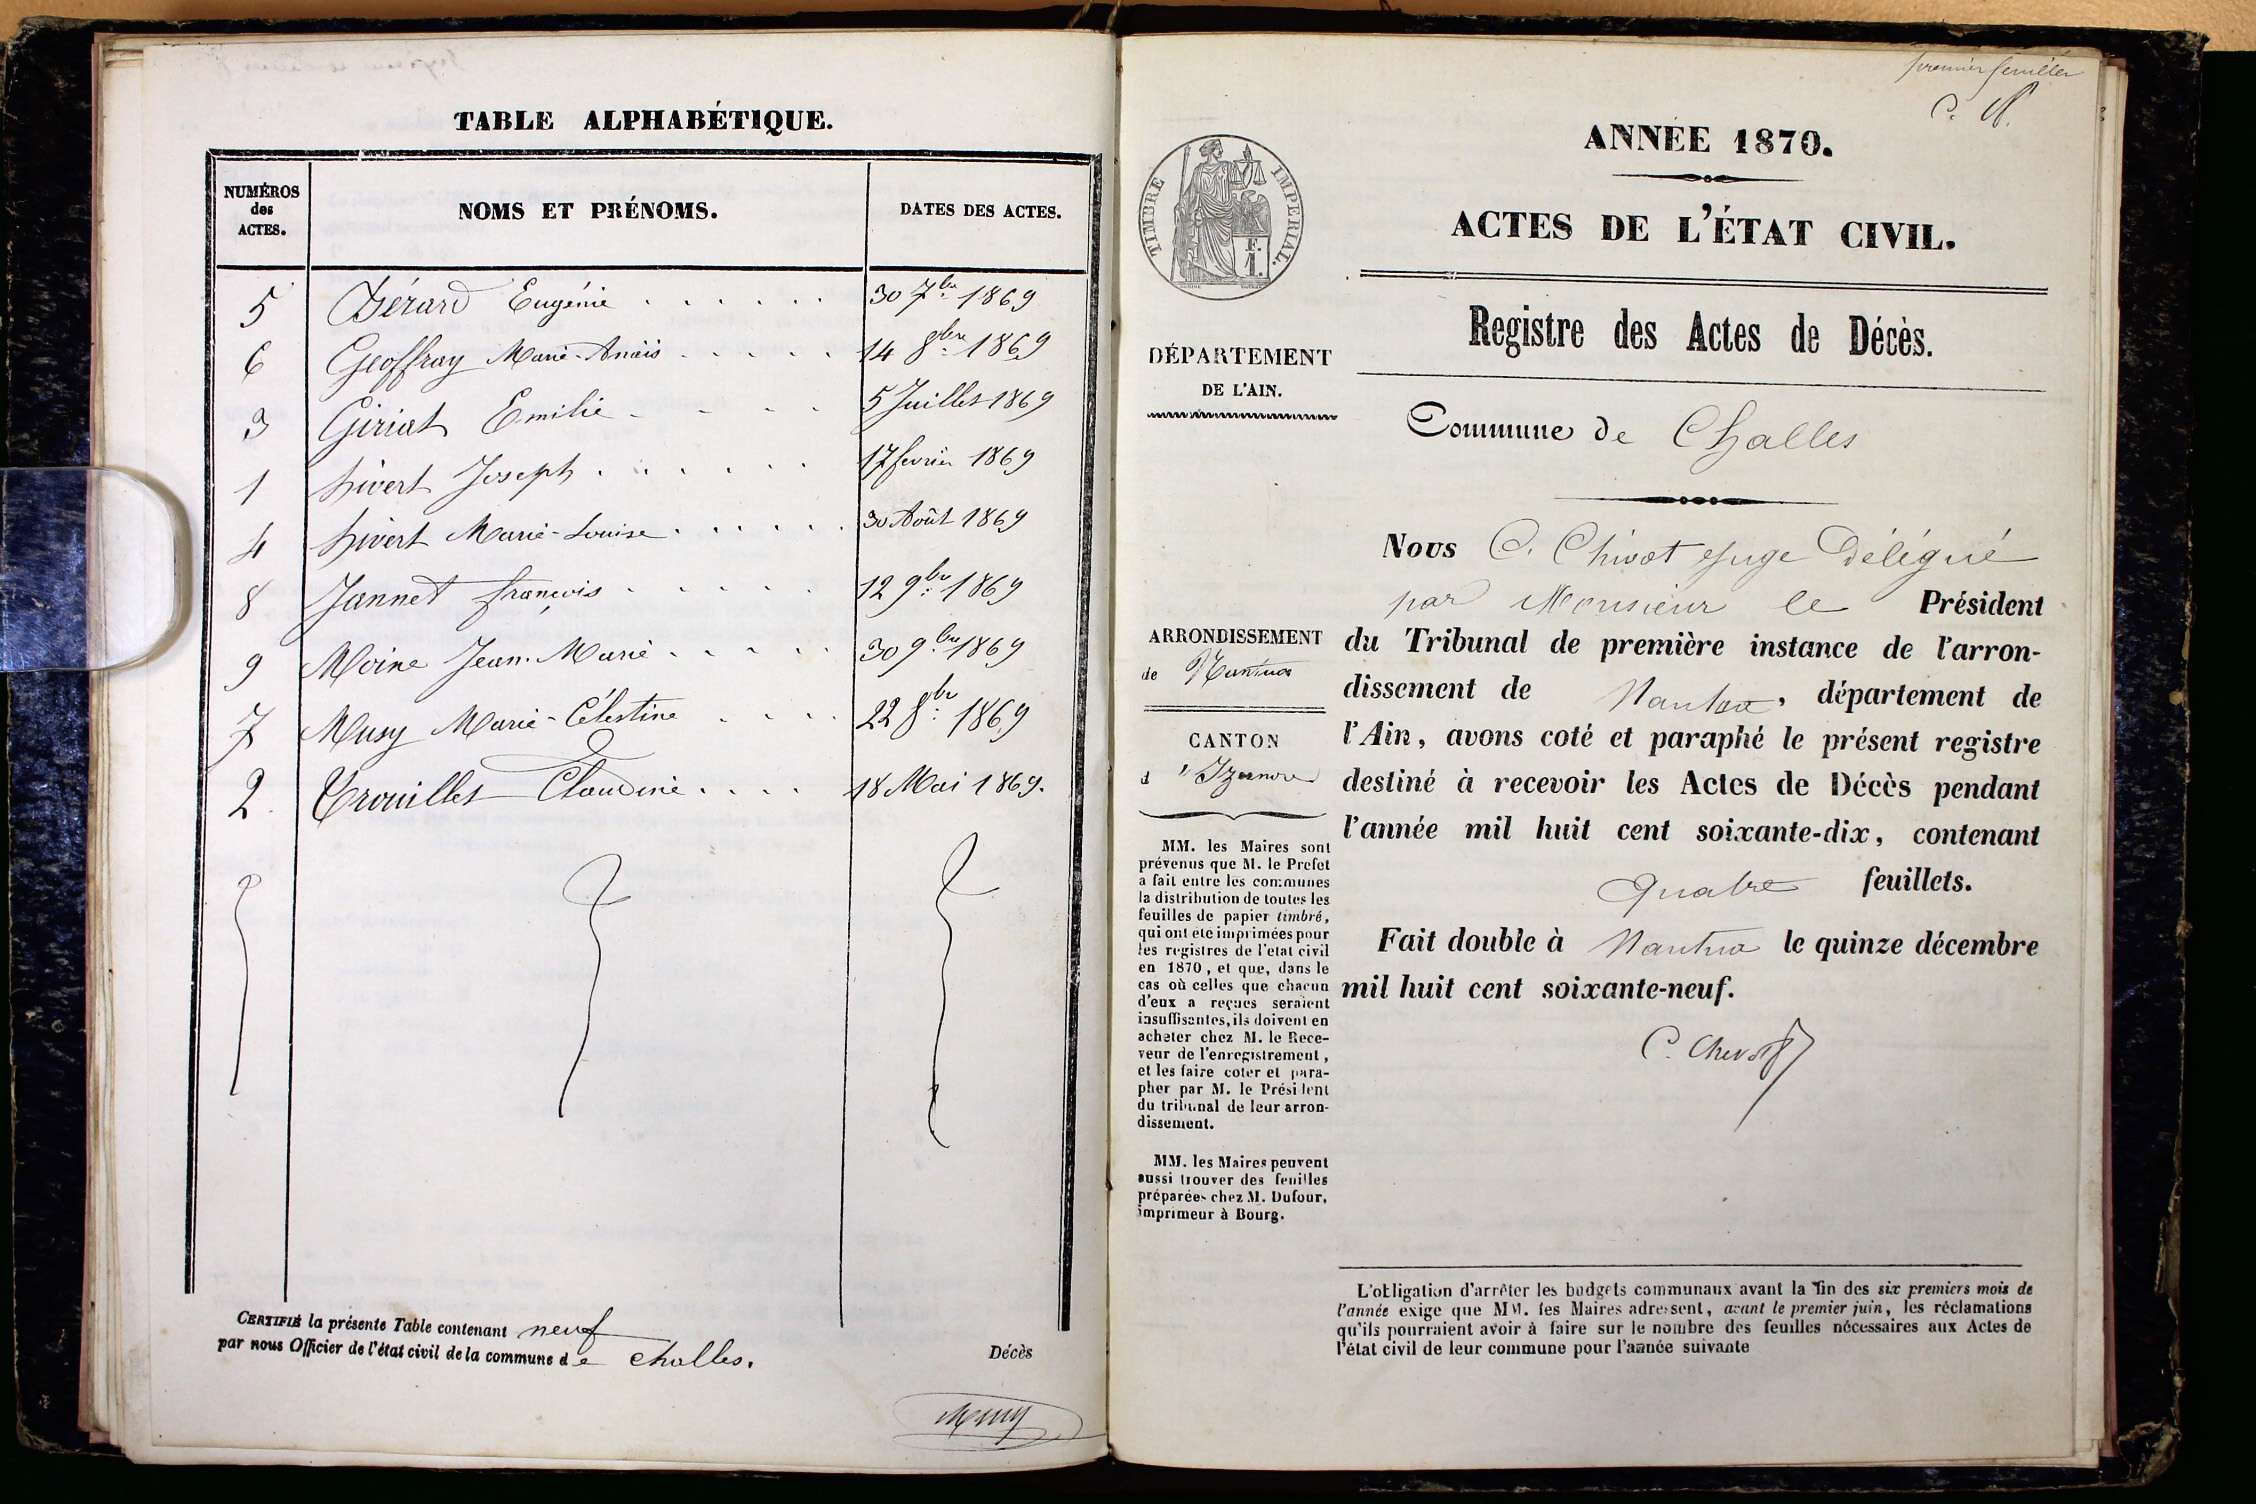 TABLE ALPHABÉTIQUE.
NUMÉROS
des
ACTES.
NOMS ET PRÉNOMS.
DATES DES ACTES.
5 Bérard Eugénie . . . . . . 30 7bre 1869
6 Geoffray Marie-Anaïs . . . . . 14 8bre 1869
3 Giriat Emilie . . . . 5 Juillet 1869
1 hivert Joseph . . . . . . 17 fevrier 1869
4 hivert Marie-Louise . . . . . . 30 Août 1869
8 Jannet françois . . . . . 12 9bre 1869
9 Moine Jean-Marie . . . . . 30 9bre 1869
7 Musy Marie-Célestine . . . . 22 8bre 1869
2 Trouillet Claudine . . . . 18 Mai 1869.
CERTIFIÉ la présente Table contenant neuf
par nous Officier de l'état civil de la commune de challes.
Décès
Musy
premier feuillet
C. C.
TIMBRE IMPERIAL.
F.
1.
ANNÉE 1870.
ACTES DE L'ÉTAT CIVIL.
Registre des Actes de Décès.
DÉPARTEMENT
DE L'AIN.
Commune de Challes
Nous C. Chivot Juge Délégué
par Monsieur le Président
du Tribunal de première instance de l'arron-
dissement de Nantua, département de
l'Ain, avons coté et paraphé le présent registre
destiné à recevoir les Actes de Décès pendant
l'année mil huit cent soixante-dix, contenant
quatre feuillets.
Fait double à Nantua le quinze décembre
mil huit cent soixante-neuf.
C. Chivot
ARRONDISSEMENT
de Nantua
CANTON
d'Izernore
MM. les Maires sont
prévenus que M. le Prefet
a fait entre les communes
la distribution de toutes les
feuilles de papier timbré,
qui ont été imprimées pour
les registres de l'etat civil
en 1870, et que, dans le
cas où celles que chacun
d'eux a reçues seraient
insuffisantes, ils doivent en
acheter chez M. le Rece-
veur de l'enregistrement,
et les faire coter et para-
pher par M. le Président
du tribunal de leur arron-
dissement.
MM. les Maires peuvent
aussi trouver des feuilles
préparées chez M. Dufour,
imprimeur à Bourg.
L'obligation d'arrêter les budgets communaux avant la fin des six premiers mois de
l'année exige que MM. les Maires adressent, avant le premier juin, les réclamations
qu'ils pourraient avoir à faire sur le nombre des feuilles nécessaires aux Actes de
l'état civil de leur commune pour l'année suivante